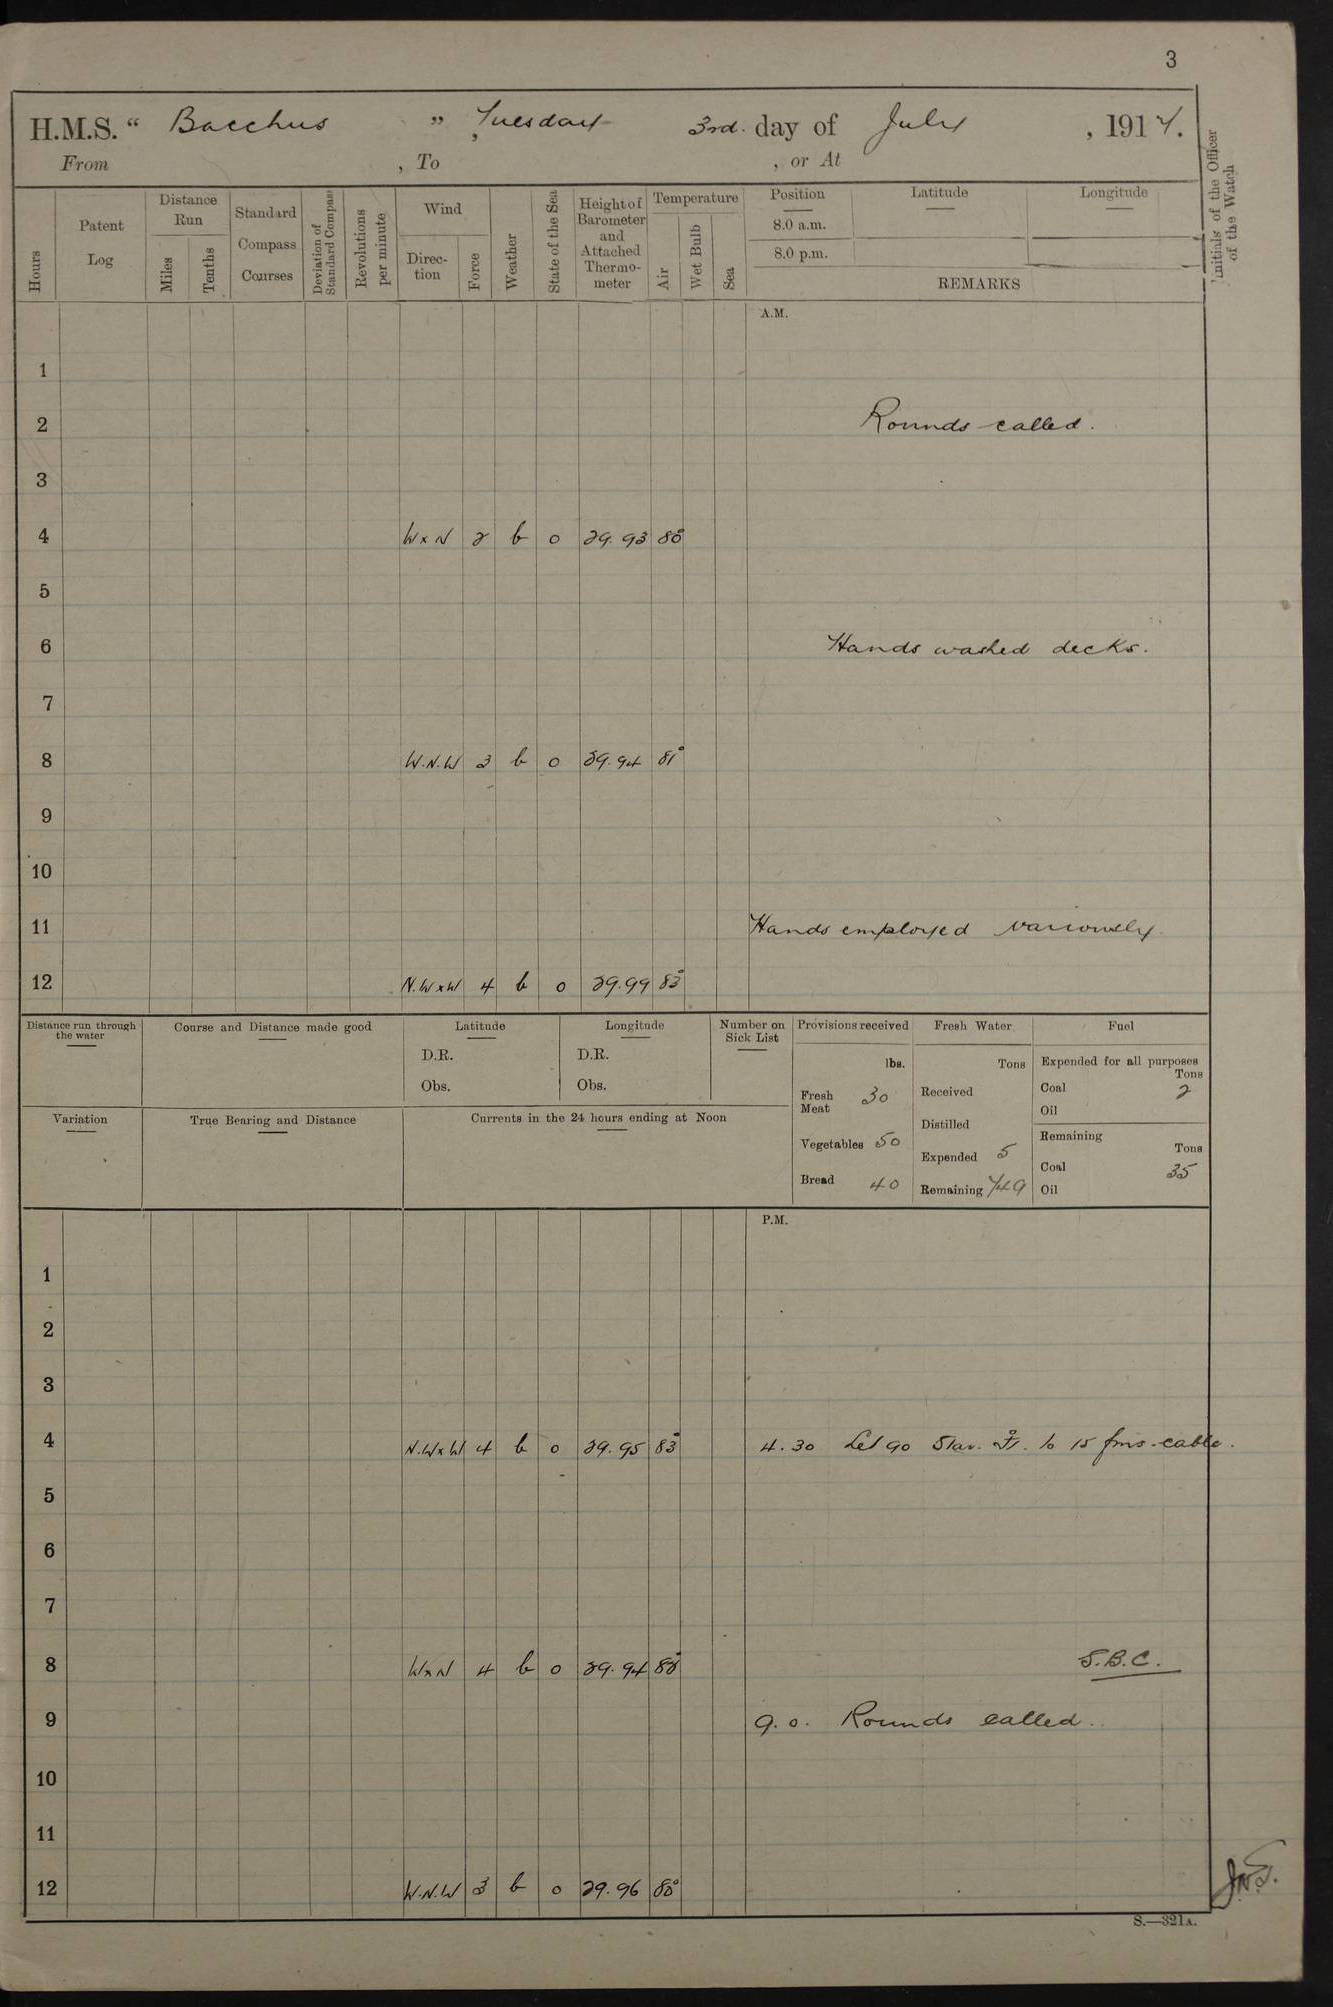 3
H.M.S. “ Bacchus ” , Tuesday 3rd. day of July , 1917.
From , To , or At
Hours
Patent Log
Distance Run
Miles
Tenths
Standard Compass Courses
Deviation of Standard Compass
Revolutions per minute
Wind
Direc-tion
Force
Weather
State of the Sea
Height of Barometer and Attached Thermo-meter
Temperature
Air
Wet Bulb
Sea
Position Latitude Longitude
8.0 a.m.
8.0 p.m.
REMARKS
Initials of the Officer of the Watch
A.M.
1
2 Rounds called.
3
4 W x N 2 b 0 29.93 80°
5
6 Hands washed decks.
7
8 W.N.W 3 b 0 29.94 81°
9
10
11 Hands employed variously
12 N.W x W 4 b 0 29.99 83°
Distance run through the water
Course and Distance made good
Latitude
D.R.
Obs.
Longitude
D.R.
Obs.
Number on Sick List
Provisions received
lbs.
Fresh Meat 30
Vegetables 50
Bread 40
Fresh Water
Tons
Received
Distilled
Expended 5
Remaining 749
Fuel
Expended for all purposes
Tons
Coal 2
Oil
Remaining
Tons
Coal 35
Oil
Variation
True Bearing and Distance
Currents in the 24 hours ending at Noon
P.M.
1
2
3
4 N.W x W 4 b 0 29.95 83° 4.30 Let go Star. to 15 fms. cable.
5
6
7
8 W x N 4 b 0 29.94 S.B.C.
9 9.0. Rounds called.
10
11
12 W.N.W 3 b 0 29.96 80°
S.—321A.